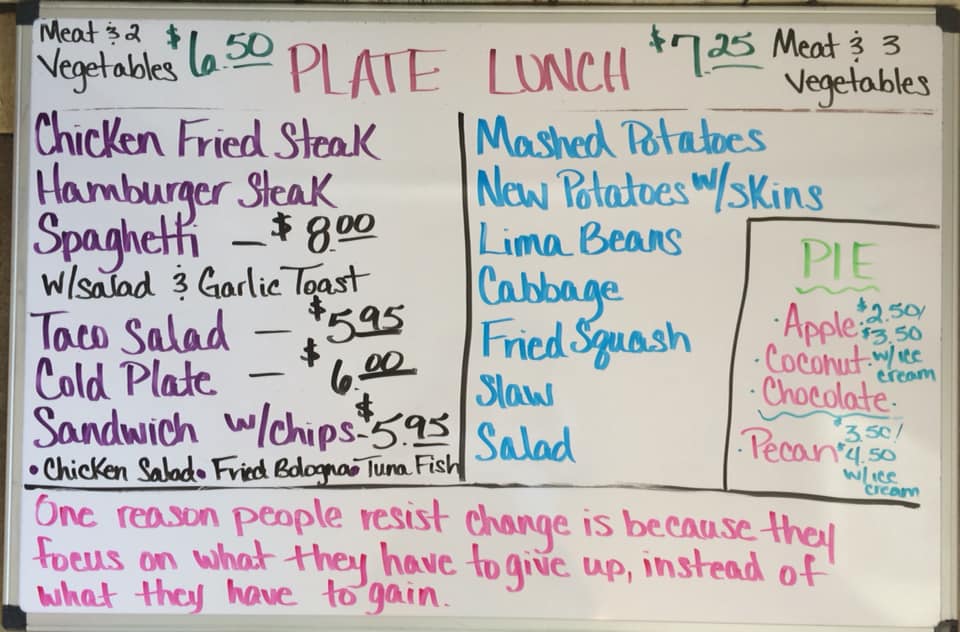 Meat & 2
Vegetables $6.50
PLATE LUNCH
$7.25 Meat & 3
Vegetables
Chicken Fried Steak
Hamburger Steak
Spaghetti — $8.00
w/salad & Garlic Toast
Taco Salad — $5.95
Cold Plate — $6.00
Sandwich w/chips - $5.95
• Chicken Salad • Fried Bologna • Tuna Fish
Mashed Potatoes
New Potatoes w/skins
Lima Beans
Cabbage
Fried Squash
Slaw
Salad
PIE
· Apple · $2.50/
· Coconut · $3.50
· Chocolate · w/ice
cream
· Pecan $3.50/
$4.50
w/ice
cream
One reason people resist change is because they
focus on what they have to give up, instead of
what they have to gain.